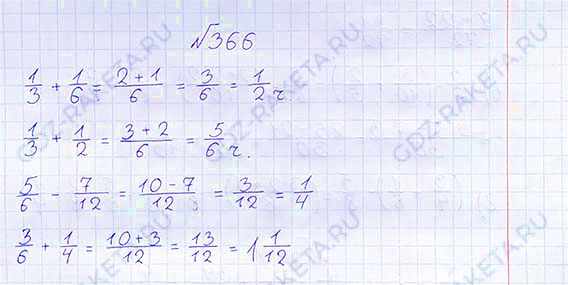 №366
1/3 + 1/6 = 2+1/6 = 3/6 = 1/2 ч.
1/3 + 1/2 = 3+2/6 = 5/6 ч.
5/6 - 7/12 = 10-7/12 = 3/12 = 1/4
3/6 + 1/4 = 10+3/12 = 13/12 = 1 1/12
GDZ-RAKETA.RU
GDZ-RAKETA.RU
GDZ-RAKETA.RU
GDZ-RAKETA.RU